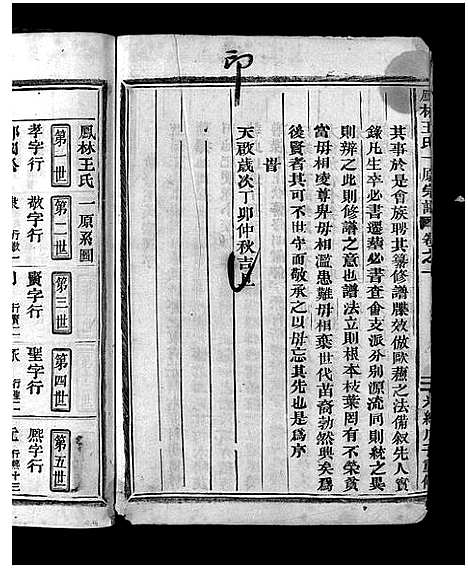 鳳林王氏一原宗譜 卷之一
其事於是會族聘其纂修譜牒效倣歐蘇之法備叙先人實
錄凡生卒必書遷葬必書查僉支派分别源流同則統之異
則辨之此則修譜之意也譜法立則根本枝葉罔有不榮賁
當毋相凌尊卑毋相濫患難毋相棄世代苗裔勃然興矣爲
後賢者其可不世守而敬承之以毋忘其先也是爲序
旹
天啟歲次丁卯仲秋吉旦
印
鳳林王氏一原系圖
第一世
孝字行
第二世
敬字行
第三世
賢字行
第四世
聖字行
第五世
熈字行